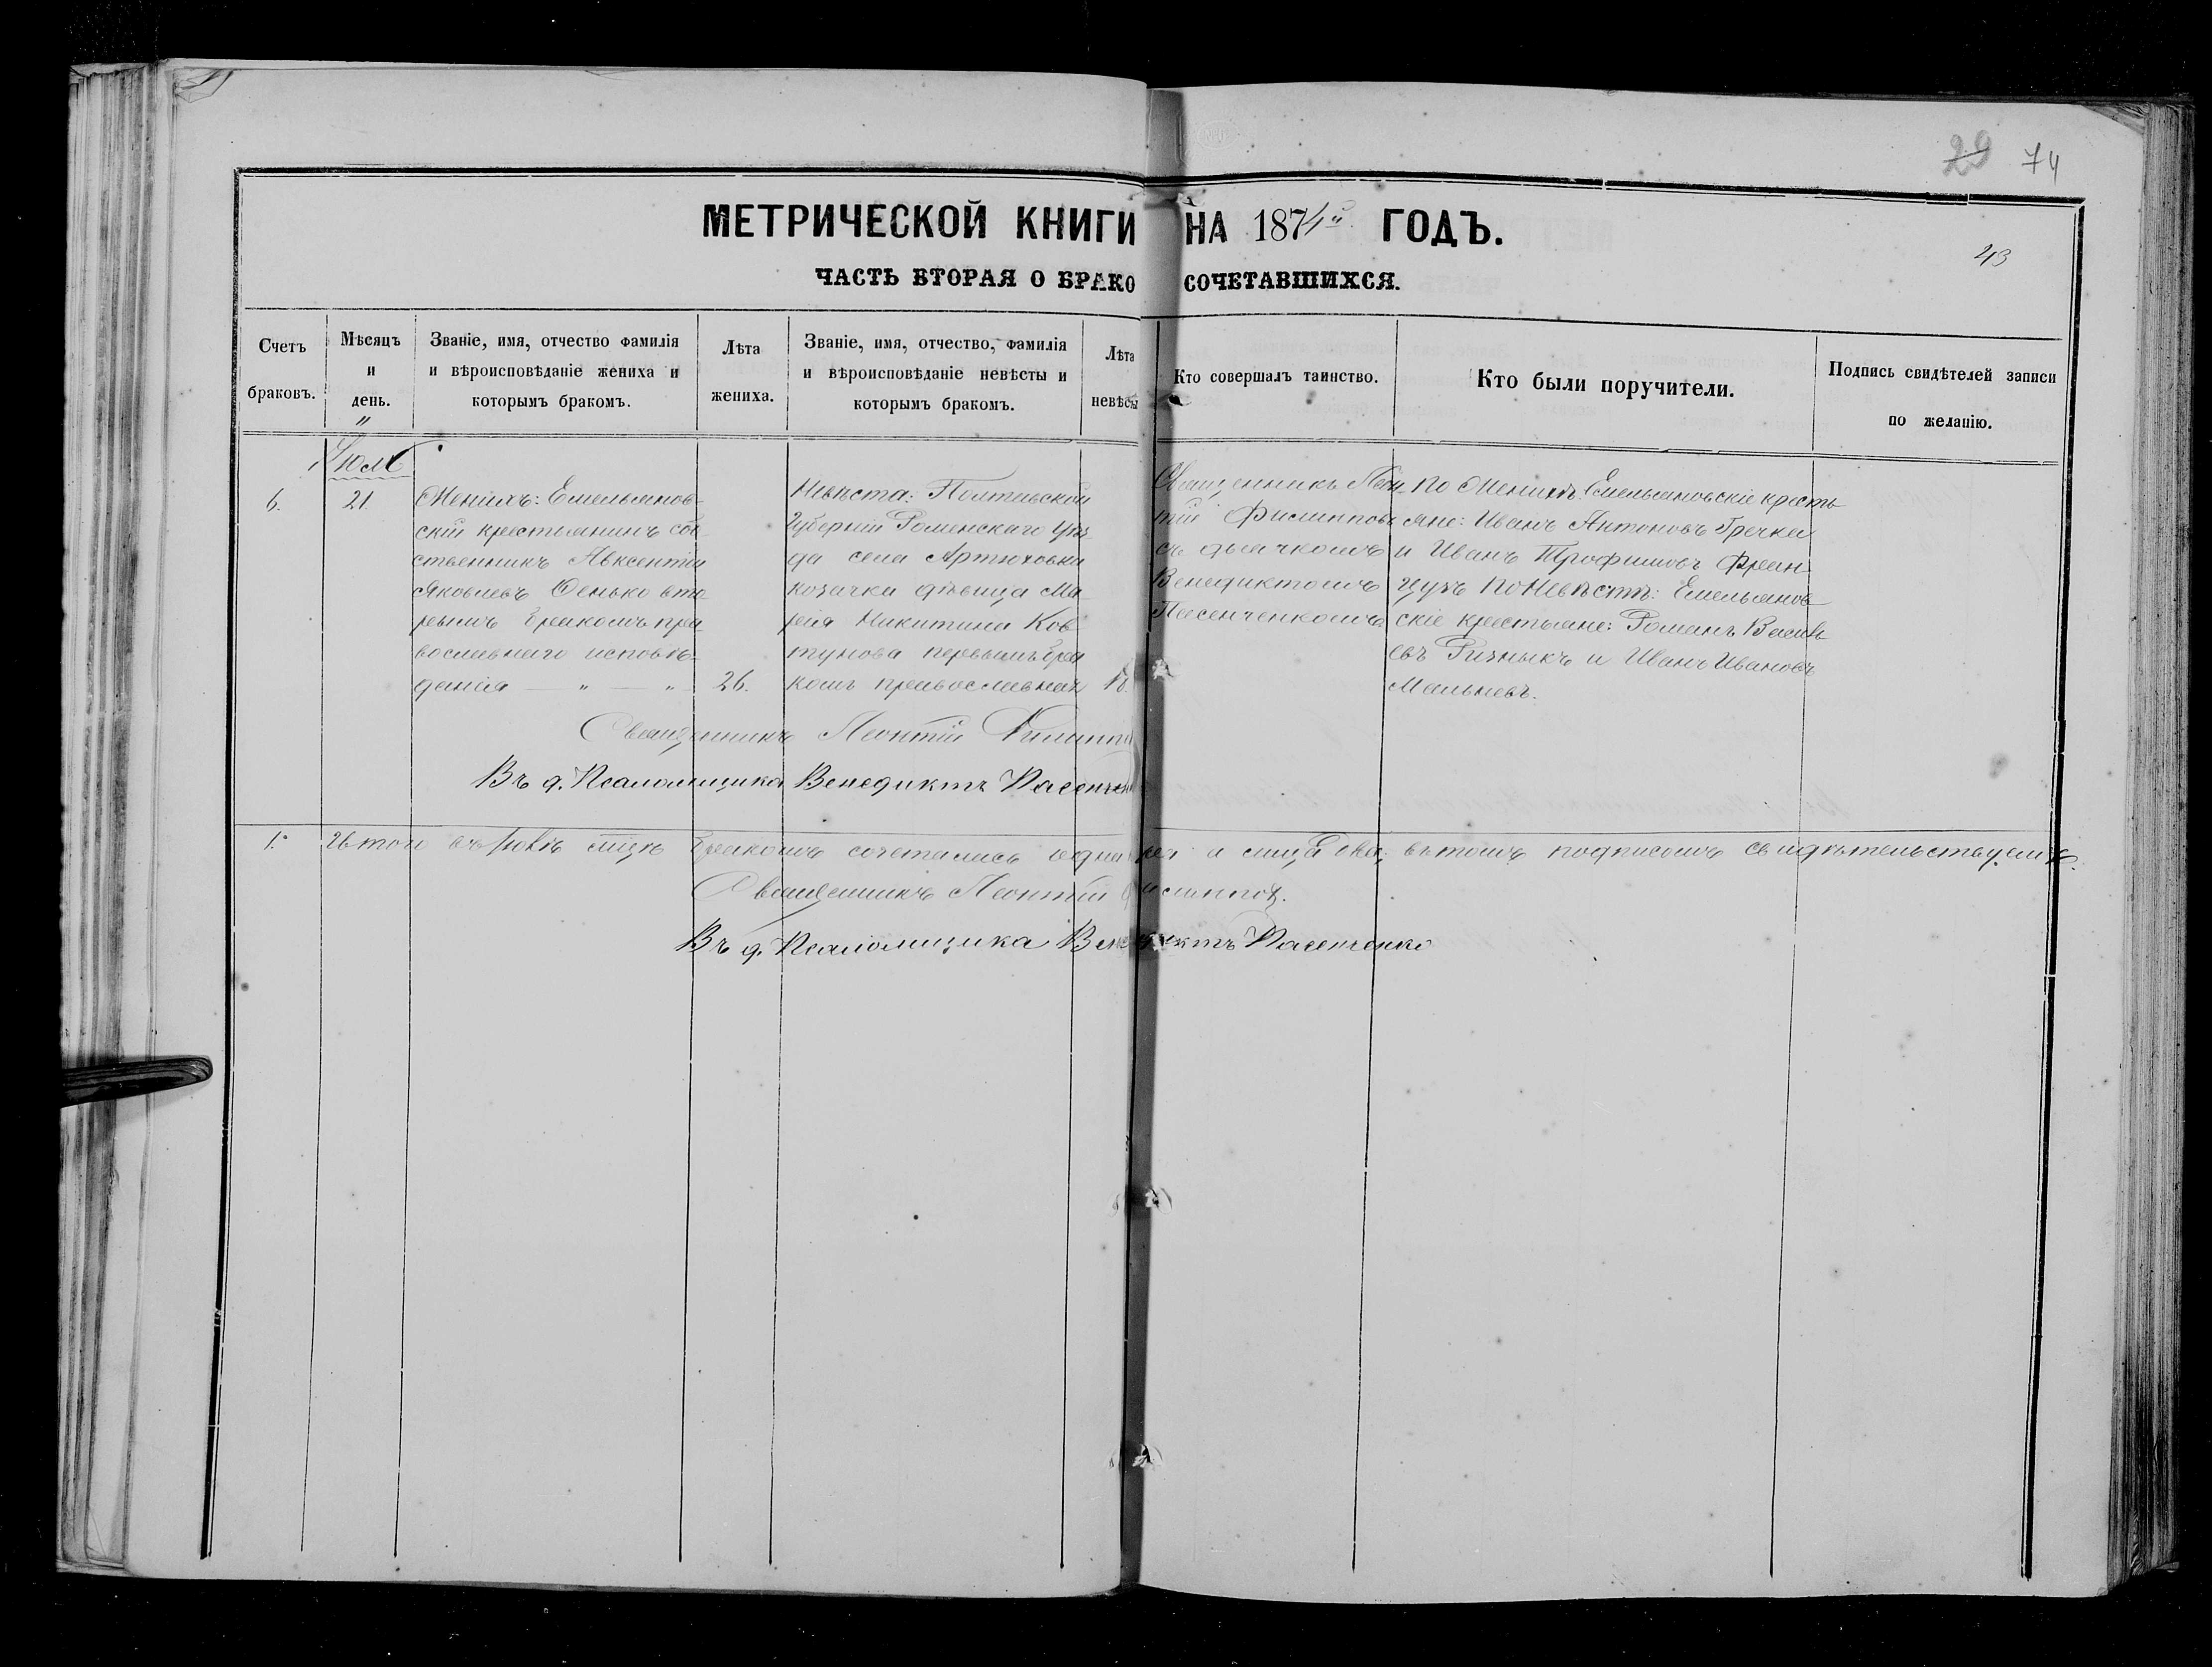 29 74
МЕТРИЧЕСКОЙ КНИГИ НА 1874й ГОДЪ.
43
ЧАСТЬ ВТОРАЯ О БРАКОСОЧЕТАВШИХСЯ.
Счетъ браковъ.
Мѣсяцъ и день.
Званіе, имя, отчество фамилія и вѣроисповѣданіе жениха и которымъ бракомъ.
Лѣта жениха.
Званіе, имя, отчество, фамилія и вѣроисповѣданіе невѣсты и которымъ бракомъ.
Лѣта невѣсы
Кто совершалъ таинство.
Кто были поручители.
Подпись свидѣтелей записи по желанію.
Іюль
6.
21.
Женихъ: Емельянов-
скій крестьянинъ соб-
ственникъ Авксентій
Яковлевъ Сенько вто-
рымъ бракомъ пра-
вославнаго исповѣ-
данія — " — "
26.
Невѣста: Полтавской
Губерніи Роменскаго Уѣз-
да села Артюховки
козачка дѣвица Ма-
рія Никитина Ков-
тунова первымъ бра-
комъ православная
18.
Священникъ Леон-
тій Филипповъ
съ дьячкомъ
Венедиктомъ
Пасенченкомъ
По Женихѣ Емельяновскіе кресть-
яне: Иванъ Антоновъ Гречка
и Иванъ Трофимовъ Фран-
цузъ По Невѣстѣ: Емельянов-
скіе крестьяне: Романъ Василь-
евъ Ризныкъ и Иванъ Ивановъ
Мальневъ.
Священникъ Леонтій Филиппо
Въ д. Псаломщика Венедиктъ Пасенчен
1.
Итого въ Іюлѣ мцѣ бракомъ сочетались одна пра а лица два, въ томъ подписомъ свидѣтельствуемъ.
Священникъ Леонтій Филипповъ.
Въ д. Псаломщика Венедиктъ Пасенченко